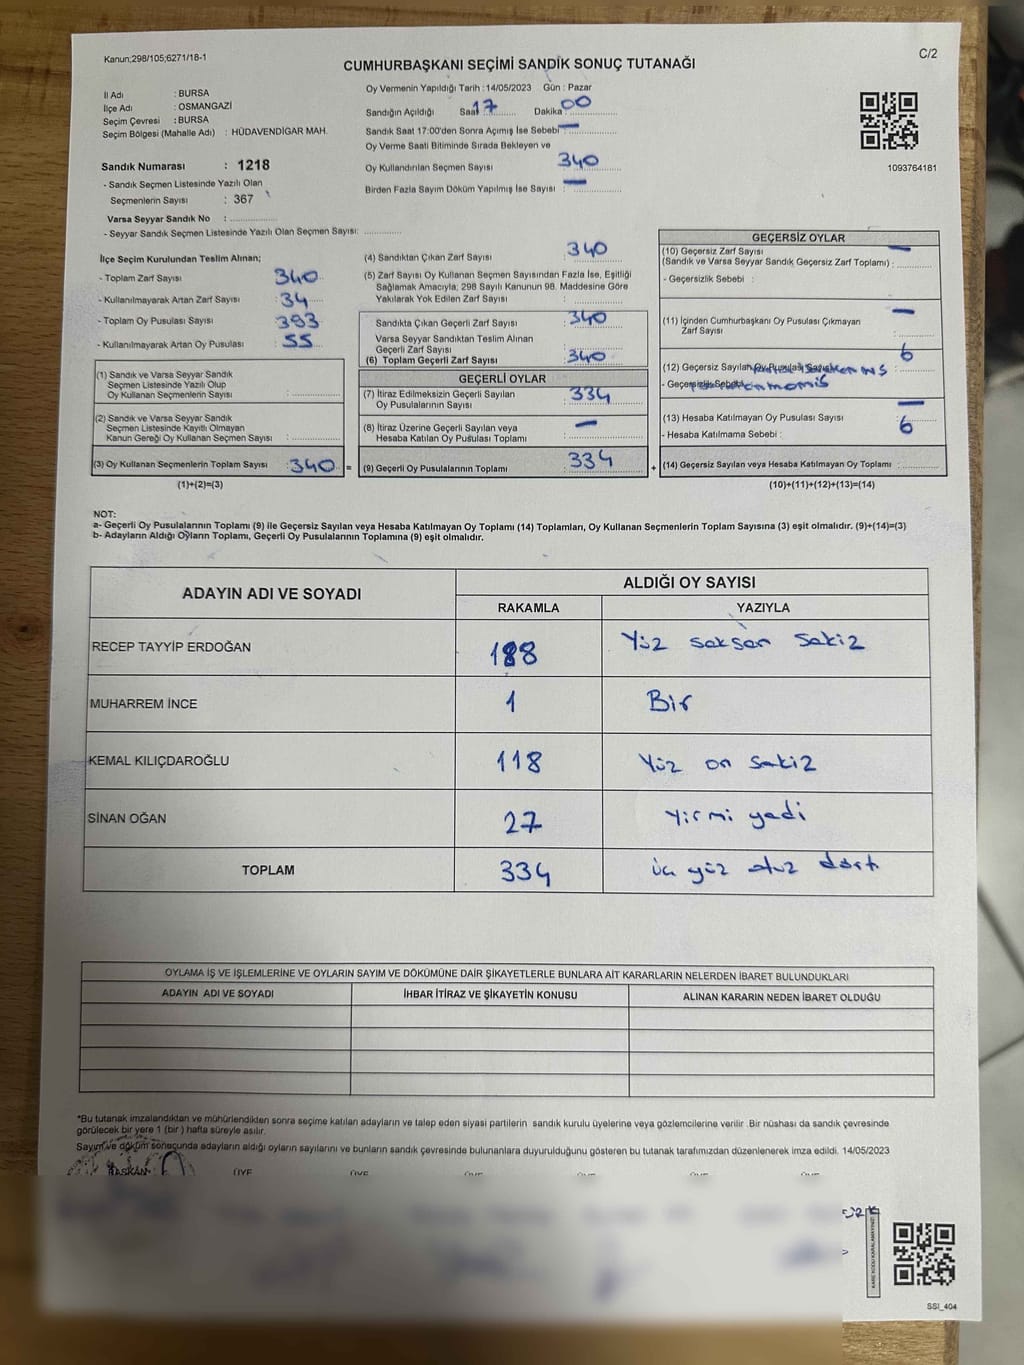 Kanun;298/105;6271/18-1
C/2
CUMHURBAŞKANI SEÇİMİ SANDIK SONUÇ TUTANAĞI
İl Adı : BURSA
İlçe Adı : OSMANGAZİ
Seçim Çevresi : BURSA
Seçim Bölgesi (Mahalle Adı) : HÜDAVENDİGAR MAH.
Sandık Numarası : 1218
- Sandık Seçmen Listesinde Yazılı Olan
Seçmenlerin Sayısı : 367
Varsa Seyyar Sandık No :
- Seyyar Sandık Seçmen Listesinde Yazılı Olan Seçmen Sayısı:
Oy Vermenin Yapıldığı Tarih :14/05/2023 Gün : Pazar
Sandığın Açıldığı Saat 17 Dakika 00
Sandık Saat 17:00'den Sonra Açımış İse Sebebi —
Oy Verme Saati Bitiminde Sırada Bekleyen ve
Oy Kullandırılan Seçmen Sayısı 340
Birden Fazla Sayım Döküm Yapılmış İse Sayısı : —
1093764181
İlçe Seçim Kurulundan Teslim Alınan;
- Toplam Zarf Sayısı : 340
- Kullanılmayarak Artan Zarf Sayısı : 34
- Toplam Oy Pusulası Sayısı : 393
- Kullanılmayarak Artan Oy Pusulası : 55
(1) Sandık ve Varsa Seyyar Sandık
Seçmen Listesinde Yazılı Olup
Oy Kullanan Seçmenlerin Sayısı :
(2) Sandık ve Varsa Seyyar Sandık
Seçmen Listesinde Kayıtlı Olmayan
Kanun Gereği Oy Kullanan Seçmen Sayısı :
(3) Oy Kullanan Seçmenlerin Toplam Sayısı : 340 =
(1)+(2)=(3)
(4) Sandıktan Çıkan Zarf Sayısı : 340
(5) Zarf Sayısı Oy Kullanan Seçmen Sayısından Fazla İse, Eşitliği
Sağlamak Amacıyla; 298 Sayılı Kanunun 98. Maddesine Göre
Yakılarak Yok Edilen Zarf Sayısı :
Sandıkta Çıkan Geçerli Zarf Sayısı : 340
Varsa Seyyar Sandıktan Teslim Alınan
Geçerli Zarf Sayısı :
(6) Toplam Geçerli Zarf Sayısı : 340
GEÇERLİ OYLAR
(7) İtiraz Edilmeksizin Geçerli Sayılan
Oy Pusulalarının Sayısı : 334
(8) İtiraz Üzerine Geçerli Sayılan veya
Hesaba Katılan Oy Pusulası Toplamı : —
(9) Geçerli Oy Pusulalarının Toplamı : 334 +
GEÇERSİZ OYLAR
(10) Geçersiz Zarf Sayısı —
(Sandık ve Varsa Seyyar Sandık Geçersiz Zarf Toplamı) :
- Geçersizlik Sebebi :
(11) İçinden Cumhurbaşkanı Oy Pusulası Çıkmayan —
Zarf Sayısı :
6
(12) Geçersiz Sayılan Oy Pusulası Sayısı :
- Geçersizlik Sebebi
(13) Hesaba Katılmayan Oy Pusulası Sayısı : —
- Hesaba Katılmama Sebebi : 6
(14) Geçersiz Sayılan veya Hesaba Katılmayan Oy Toplamı :
(10)+(11)+(12)+(13)=(14)
NOT:
a- Geçerli Oy Pusulalarının Toplamı (9) ile Geçersiz Sayılan veya Hesaba Katılmayan Oy Toplamı (14) Toplamları, Oy Kullanan Seçmenlerin Toplam Sayısına (3) eşit olmalıdır. (9)+(14)=(3)
b- Adayların Aldığı Oyların Toplamı, Geçerli Oy Pusulalarının Toplamına (9) eşit olmalıdır.
ADAYIN ADI VE SOYADI
ALDIĞI OY SAYISI
RAKAMLA YAZIYLA
RECEP TAYYİP ERDOĞAN 188 Yüz seksen sekiz
MUHARREM İNCE 1 Bir
KEMAL KILIÇDAROĞLU 118 Yüz on sekiz
SİNAN OĞAN 27 Yirmi yedi
TOPLAM 334 üç yüz otuz dört
OYLAMA İŞ VE İŞLEMLERİNE VE OYLARIN SAYIM VE DÖKÜMÜNE DAİR ŞİKAYETLERLE BUNLARA AİT KARARLARIN NELERDEN İBARET BULUNDUKLARI
ADAYIN ADI VE SOYADI İHBAR İTİRAZ VE ŞİKAYETİN KONUSU ALINAN KARARIN NEDEN İBARET OLDUĞU
*Bu tutanak imzalandıktan ve mühürlendikten sonra seçime katılan adayların ve talep eden siyasi partilerin sandık kurulu üyelerine veya gözlemcilerine verilir .Bir nüshası da sandık çevresinde
görülecek bir yere 1 (bir ) hafta süreyle asılır.
Sayım ve döküm sonucunda adayların aldığı oyların sayılarını ve bunların sandık çevresinde bulunanlara duyurulduğunu gösteren bu tutanak tarafımızdan düzenlenerek imza edildi. 14/05/2023
BAŞKAN ÜYE ÜYE ÜYE ÜYE ÜYE
KARE KODU KARALAMAYINIZ!
SSI_404